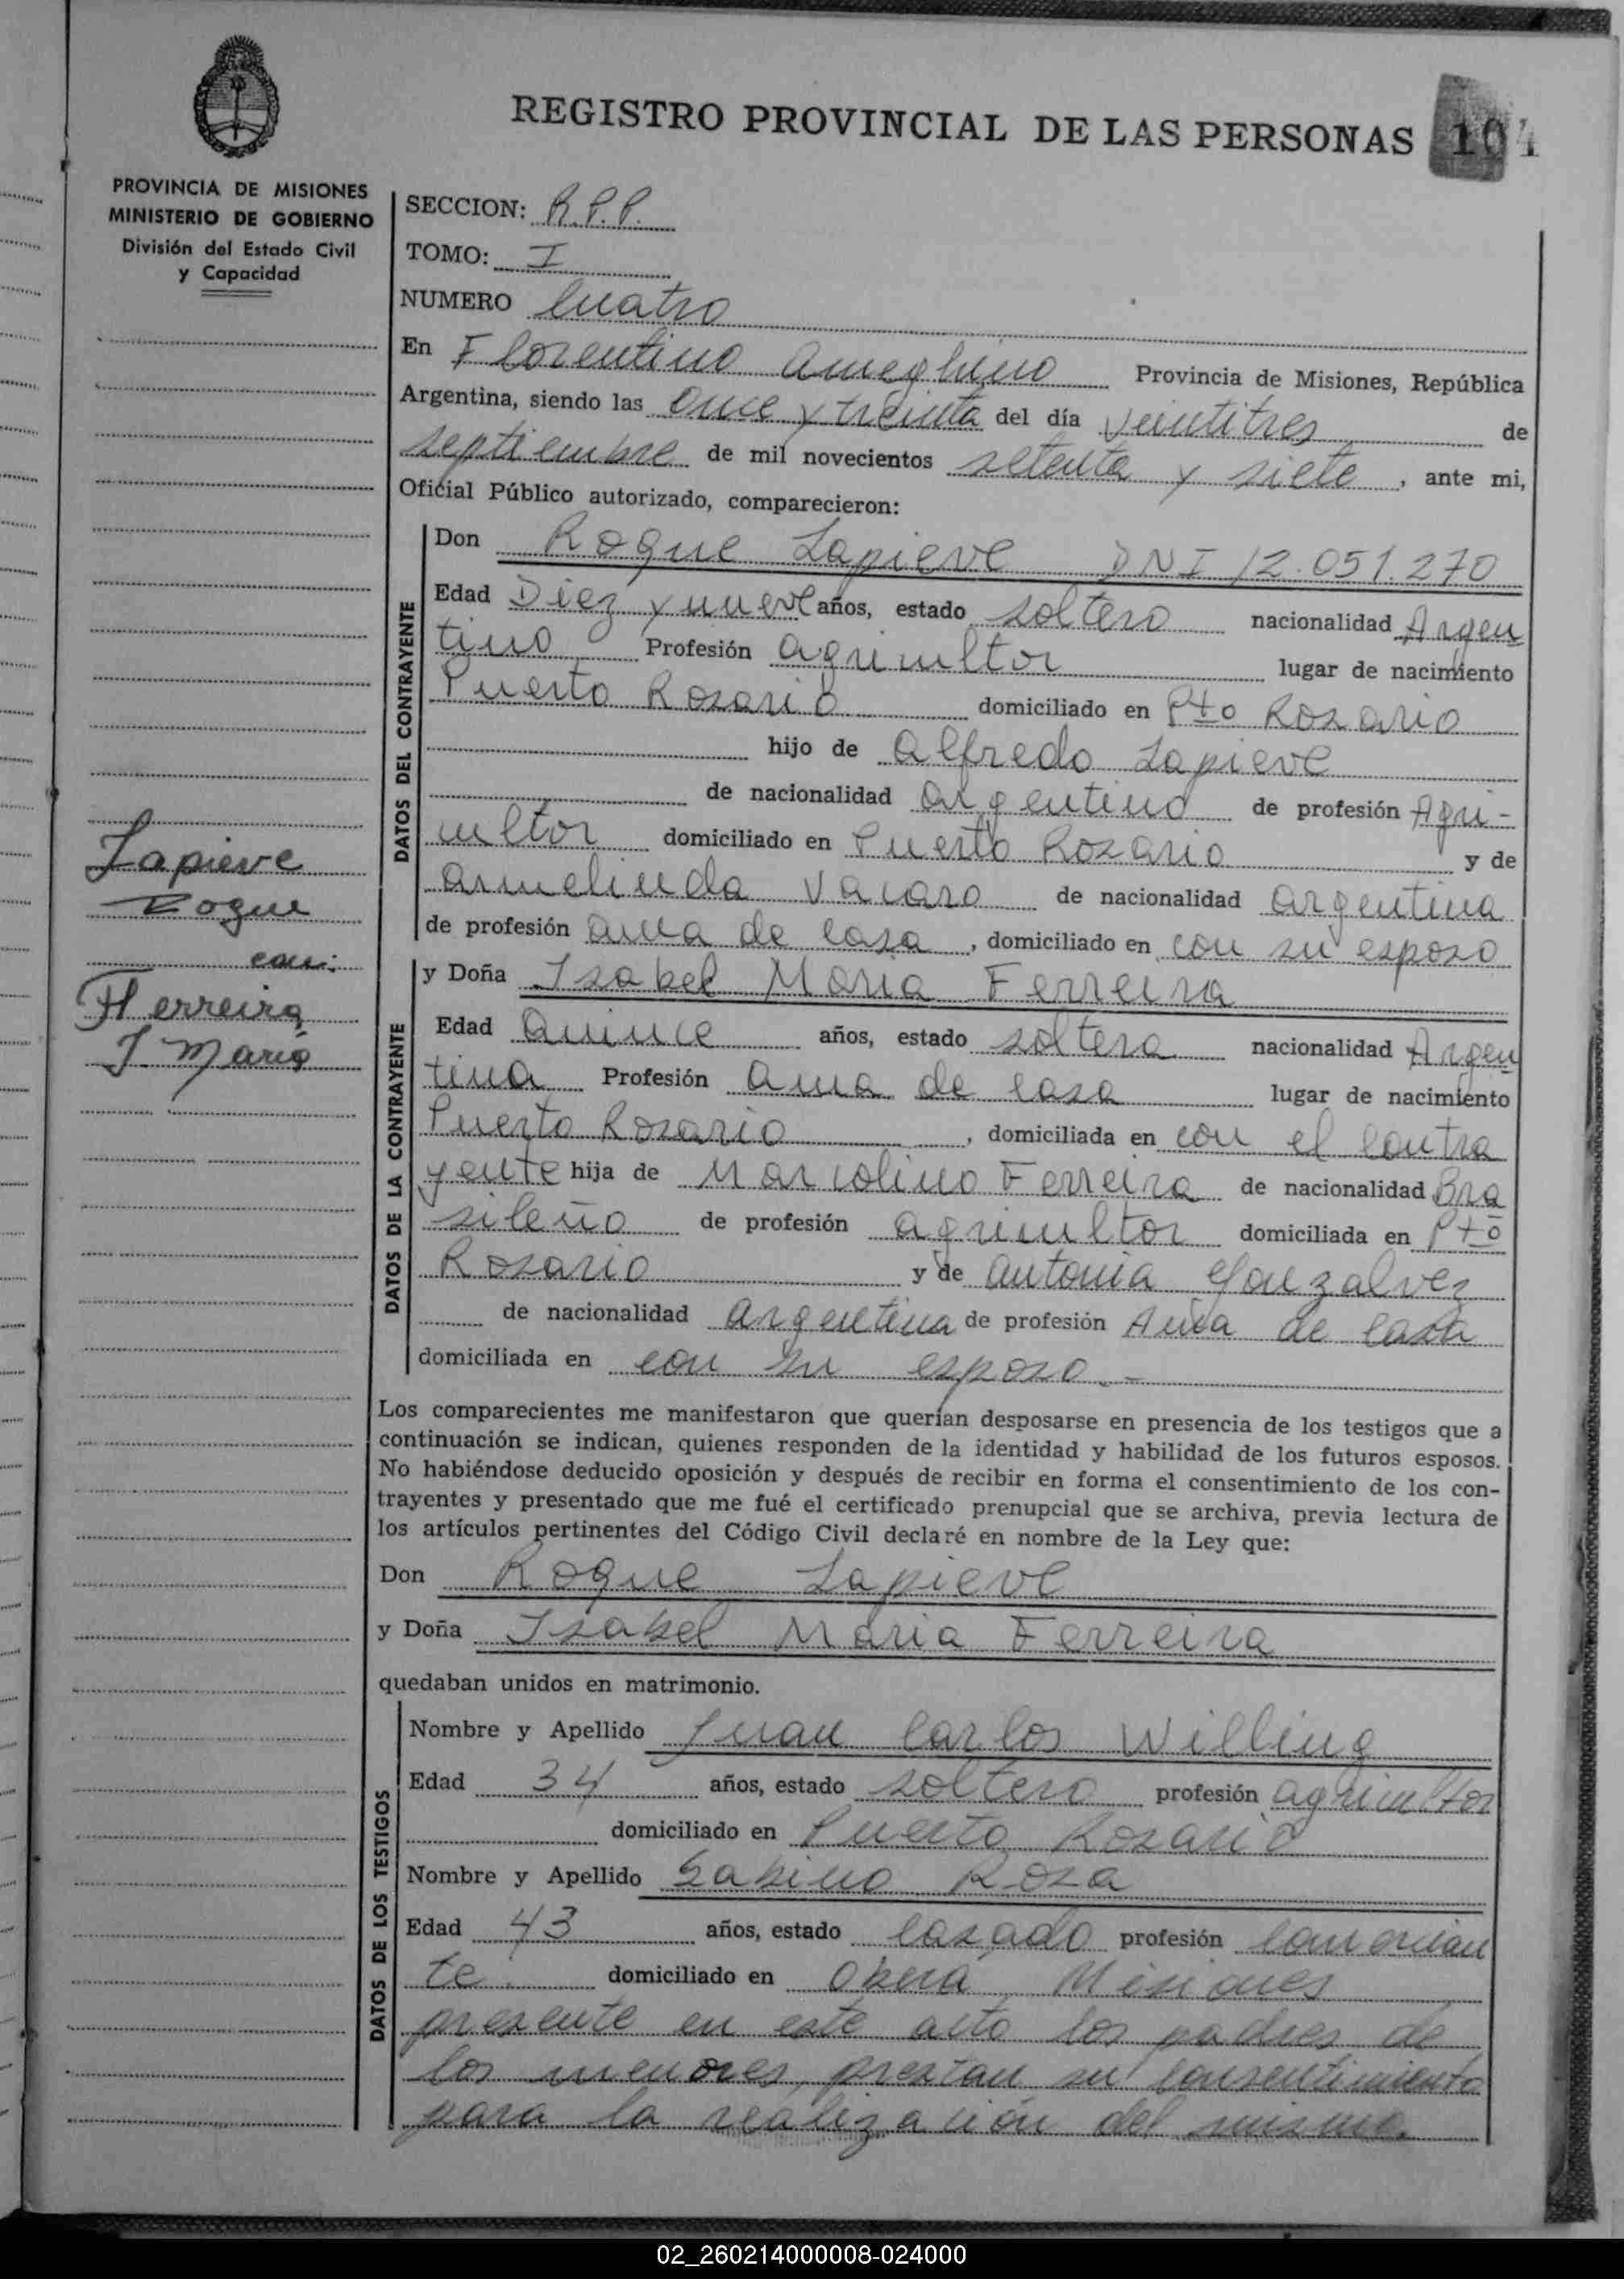 REGISTRO PROVINCIAL DE LAS PERSONAS 104
PROVINCIA DE MISIONES
MINISTERIO DE GOBIERNO
División del Estado Civil
y Capacidad
SECCION: R.P.P.
TOMO: I
NUMERO Cuatro
En Florentino Ameghino Provincia de Misiones, República
Argentina, siendo las Once y treinta del día veintitres de
septiembre de mil novecientos setenta y siete, ante mi,
Oficial Público autorizado, comparecieron:
DATOS DEL CONTRAYENTE
Don Roque Lapieve DNI 12.051.270
Edad Diez y nueve años, estado soltero nacionalidad Argen
tino Profesión agricultor lugar de nacimiento
Puerto Rosario domiciliado en Pto Rosario
hijo de Alfredo Lapieve
de nacionalidad Argentino de profesión Agri-
cultor domiciliado en Puerto Rosario y de
Armelinda Vacaro de nacionalidad argentina
de profesión ama de casa, domiciliado en con su esposo
Lapieve
Roque
con:
Ferreira
I María
DATOS DE LA CONTRAYENTE
y Doña Isabel María Ferreira
Edad Quince años, estado soltera nacionalidad Argen
tina Profesión ama de casa lugar de nacimiento
Puerto Rosario, domiciliada en con el contra
yente hija de Marcolino Ferreira de nacionalidad Bra
sileño de profesión agricultor domiciliada en Pto
Rosario y de Antonia Gonzalvez
de nacionalidad argentina de profesión Ama de casa
domiciliada en con su esposo.-
Los comparecientes me manifestaron que querían desposarse en presencia de los testigos que a
continuación se indican, quienes responden de la identidad y habilidad de los futuros esposos.
No habiéndose deducido oposición y después de recibir en forma el consentimiento de los con-
trayentes y presentado que me fué el certificado prenupcial que se archiva, previa lectura de
los artículos pertinentes del Código Civil declaré en nombre de la Ley que:
Don Roque Lapieve
y Doña Isabel María Ferreira
quedaban unidos en matrimonio.
DATOS DE LOS TESTIGOS
Nombre y Apellido Juan Carlos Willing
Edad 34 años, estado soltero profesión agricultor
domiciliado en Puerto Rosario
Nombre y Apellido Sabino Roza
Edad 43 años, estado casado profesión comercian
te domiciliado en Oberá Misiones
presente en este acto los padres de
los menores, prestan su consentimiento
para la realización del mismo.
02_260214000008-024000